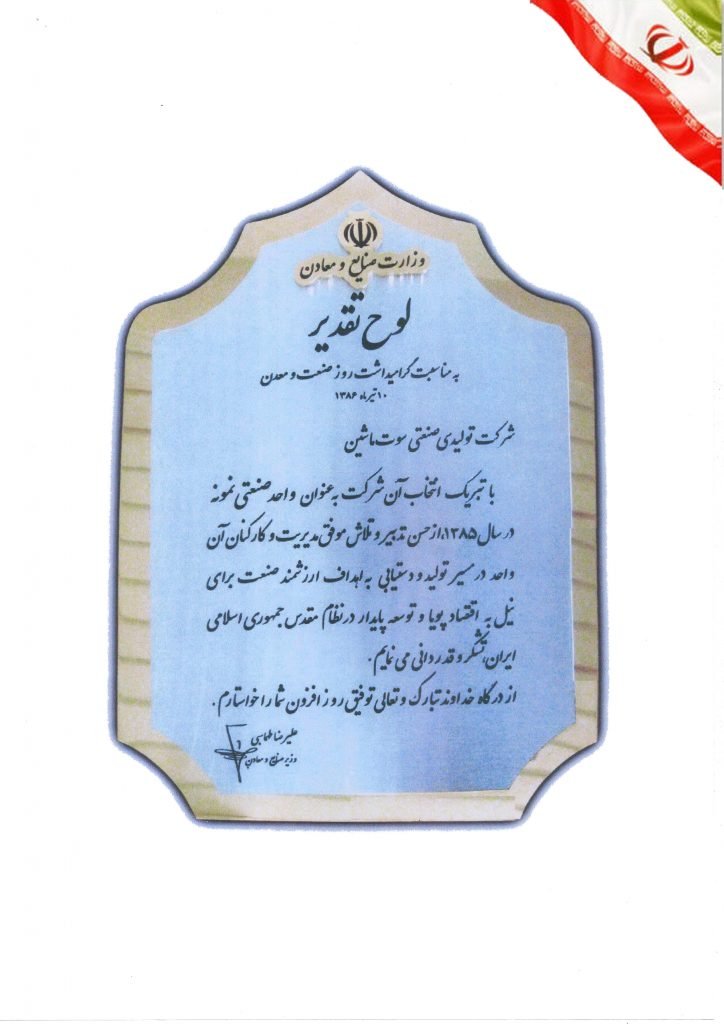 وزارت صنایع و معادن
لوح تقدیر
به مناسبت گرامیداشت روز صنعت و معدن
۱۰ تیرماه ۱۳۸۶
شرکت تولیدی صنعتی سوت ماشین
با تبریک انتخاب آن شرکت به عنوان واحد صنعتی نمونه
در سال ۱۳۸۵، از حسن تدبیر و تلاش موفق مدیریت و کارکنان آن
واحد در مسیر تولید و دستیابی به اهداف ارزشمند صنعت برای
نیل به اقتصاد پویا و توسعه پایدار در نظام مقدس جمهوری اسلامی
ایران، تشکر و قدردانی می نمایم.
از درگاه خداوند تبارک و تعالی توفیق روز افزون شما را خواستارم.
علیرضا طهماسبی
وزیر صنایع و معادن